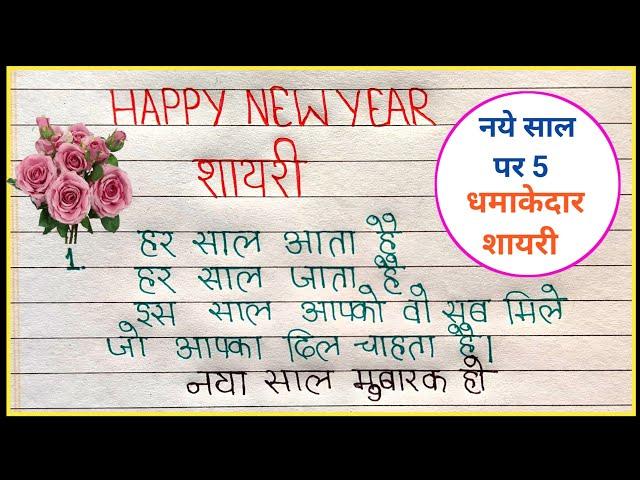 HAPPY NEW YEAR
शायरी
नये साल
पर 5
धमाकेदार
शायरी
1. हर साल आता है
हर साल जाता है
इस साल आपको वो सब मिले
जो आपका दिल चाहता है।
नया साल मुबारक हो